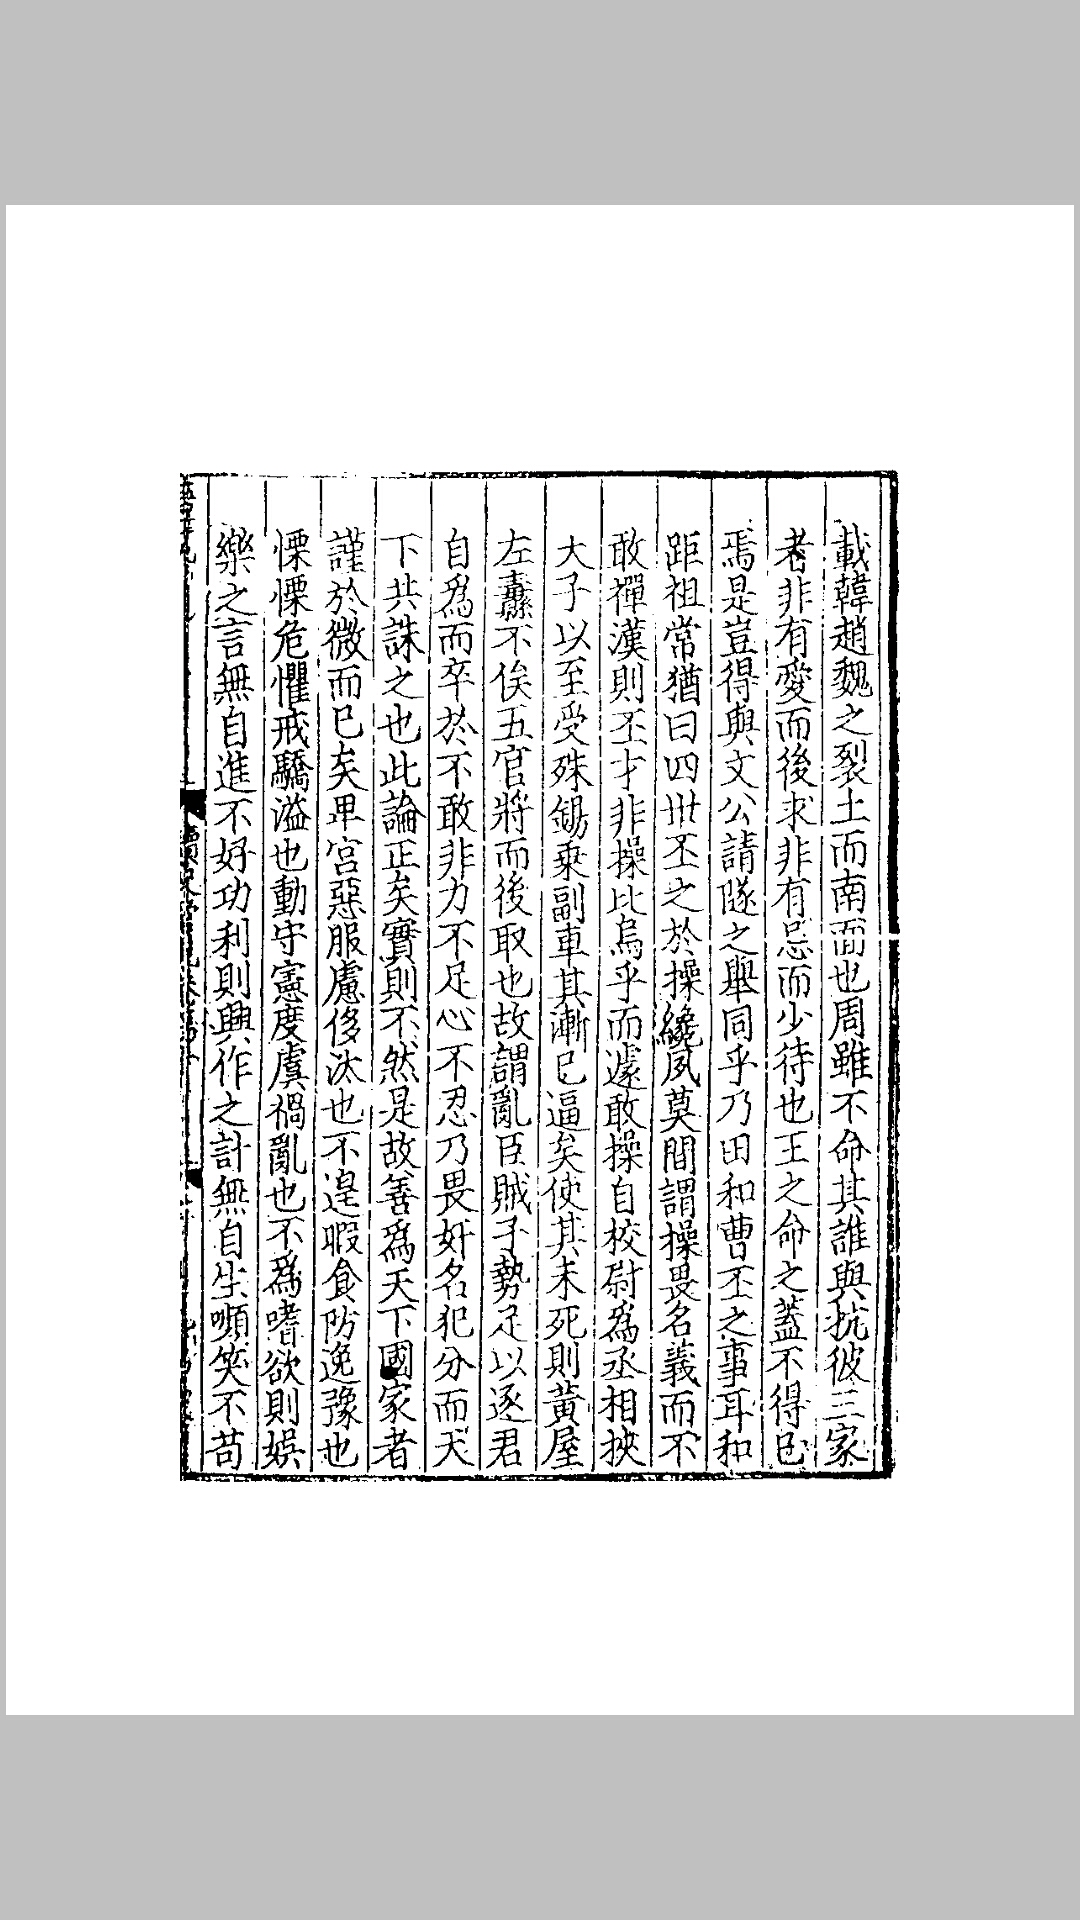 載韓趙魏之裂土而南面也周雖不命其誰與抗彼三家
者非有愛而後求非有忌而少待也王之命之蓋不得已
焉是豈得與文公請隧之舉同乎乃田和曹丕之事耳和
距祖常猶曰四丗丕之於操纔夙莫間謂操畏名義而不
敢禪漢則丕才非操比烏乎而遽敢操自校尉爲丞相挾
天子以至受殊錫乗副車其漸已逼矣使其未死則黃屋
左纛不俟五官將而後取也故謂亂臣賊子勢足以逐君
自爲而卒於不敢非力不足心不忍乃畏奸名犯分而天
下共誅之也此論正矣實則不然是故善爲天下國家者
謹於微而已矣卑宮惡服慮侈汰也不遑暇食防逸豫也
慄慄危懼戒驕溢也動守憲度虞禍亂也不爲嗜欲則娯
樂之言無自進不好功利則興作之計無自生嚬笑不苟